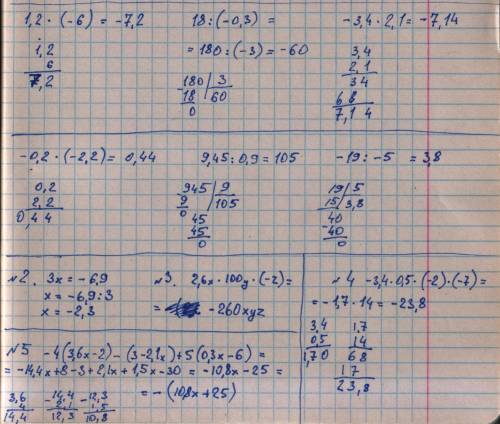 1,2 · (-6) = -7,2
1,2
6
7,2
18 : (-0,3) =
= 180 : (-3) = -60
180 | 3
18 | 60
0
-3,4 · 2,1 = -7,14
3,4
2,1
34
68
7,14
-0,2 · (-2,2) = 0,44
0,2
2,2
0,44
9,45 : 0,9 = 105
945 | 9
9 | 105
0
45
45
0
-19 : -5 = 3,8
19 | 5
15 | 3,8
40
-40
0
№2. 3x = -6,9
x = -6,9 : 3
x = -2,3
№3. 2,6x · 100y · (-z) =
= -260xyz
№4 -3,4 · 0,5 · (-2) · (-7) =
= -1,7 · 14 = -23,8
3,4
0,5
1,70
1,7
14
68
17
23,8
№5 -4(3,6x-2) - (3-2,1x) + 5(0,3x-6) =
= -14,4x + 8 - 3 + 2,1x + 1,5x - 30 = -10,8x - 25 =
= -(10,8x + 25)
3,6
4
14,4
-14,4
2,1
12,3
-12,3
1,5
10,8